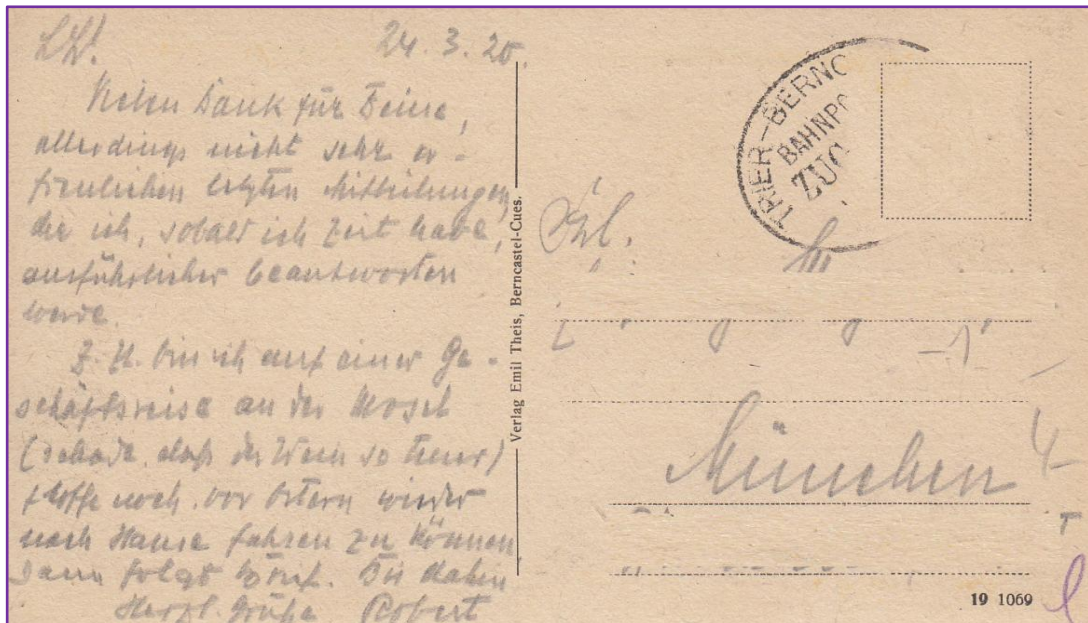 24. 3. 20.
Vielen Dank für Deine,
allerdings nicht sehr er-
freulichen letzten Mitteilungen,
die ich, sobald ich Zeit habe,
ausführlicher beantworten
werde.
Z. Zt. bin ich auf einer Ge-
schäftsreise an der Mosel
(schade, daß der Wein so teuer)
+ hoffe noch vor Ostern wieder
nach Hause fahren zu können
Dann folgt Brief. Bis dahin
Herzl. Grüße Robert
Verlag Emil Theis, Berncastel-Cues.
TRIER-BERNC
BAHNPO
ZUG
Frl.
München
19 1069